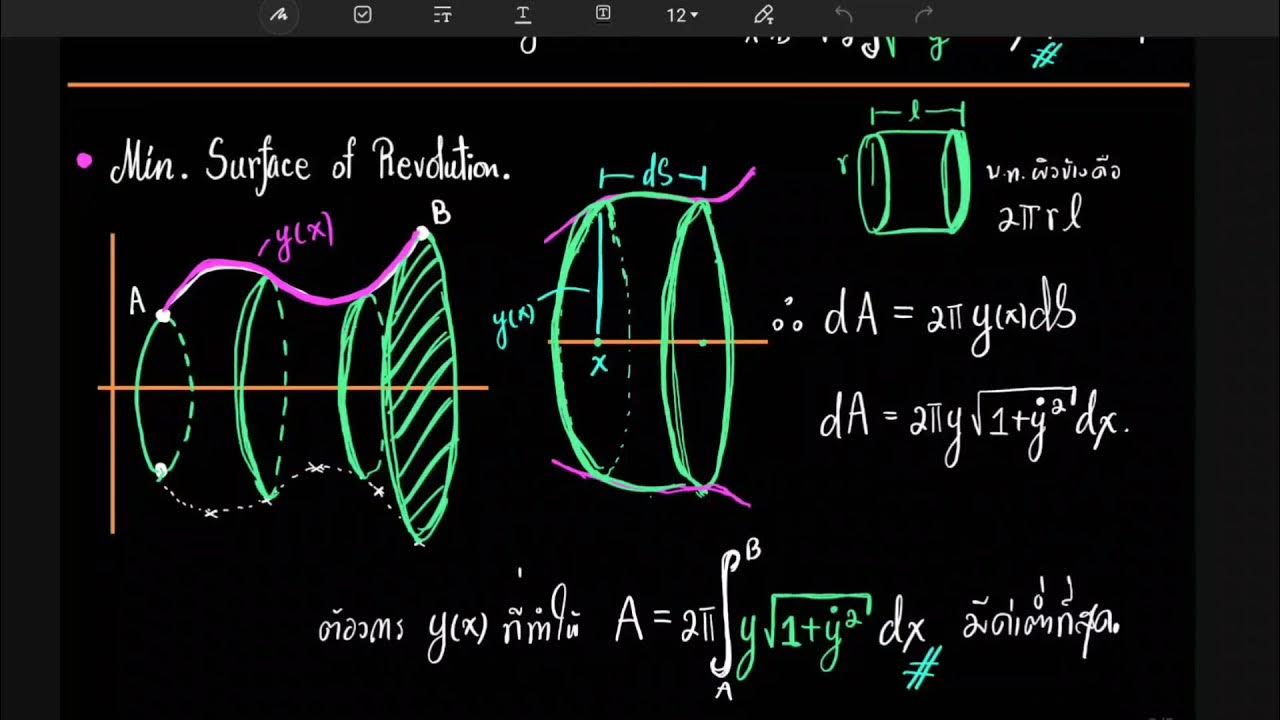 12
• Min. Surface of Revolution.
A
y(x)
B
dS
y(x)
x
l
r
พ.ท. ผิวข้างคือ
2πrl
∴ dA = 2πy(x)dS
dA = 2πy√(1+ẏ²) dx.
ต้องการ y(x) ที่ทำให้ A = 2π∫_A^B y√(1+ẏ²) dx มีค่าต่ำที่สุด.
#